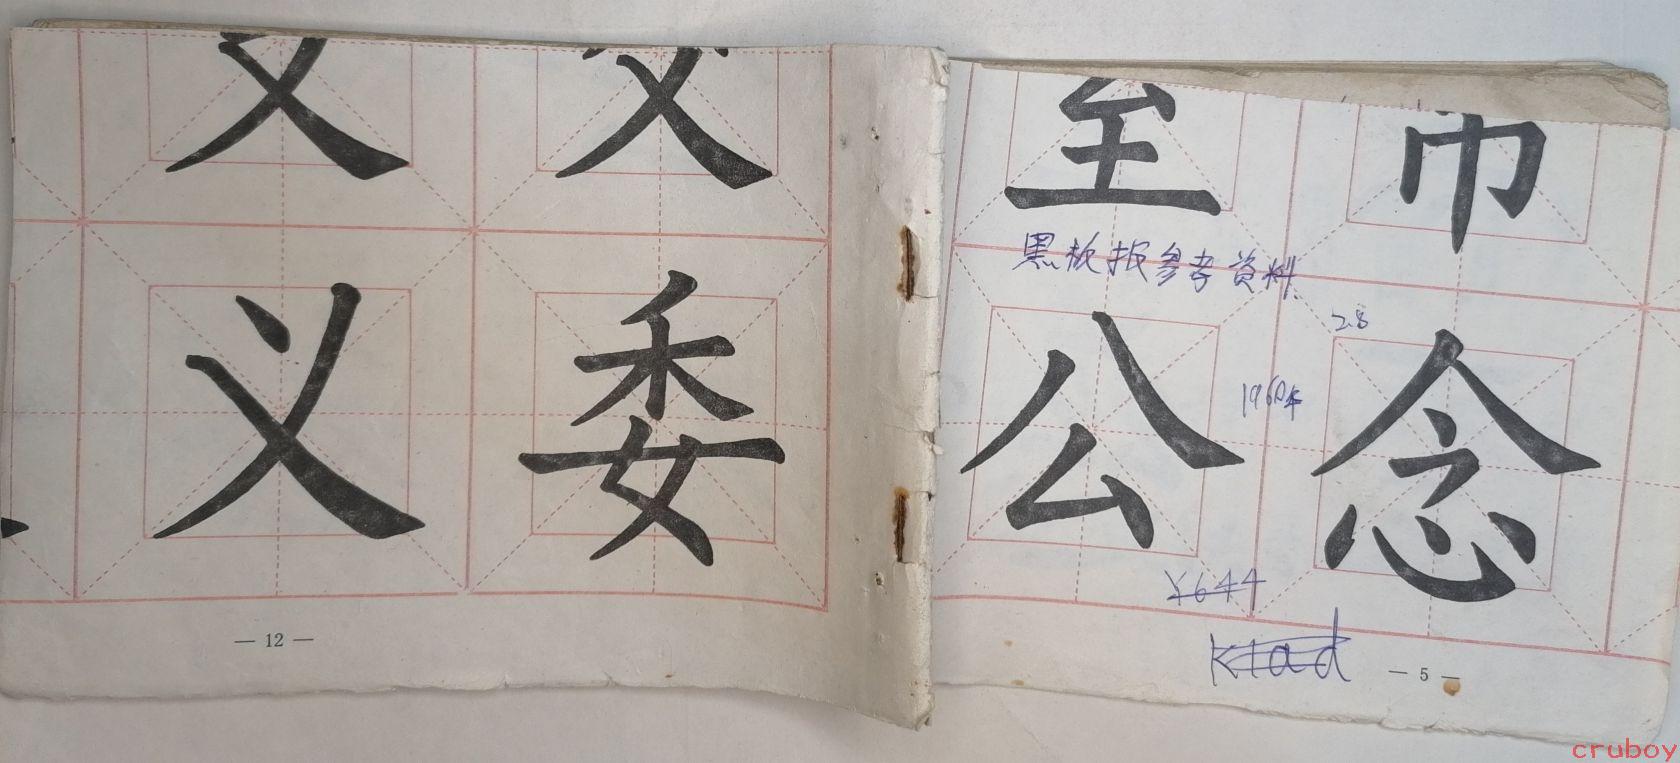 至
黑板报参考资料
28
义委
公念
1960年
¥644
ktad
— 12 —
— 5 —
cruboy